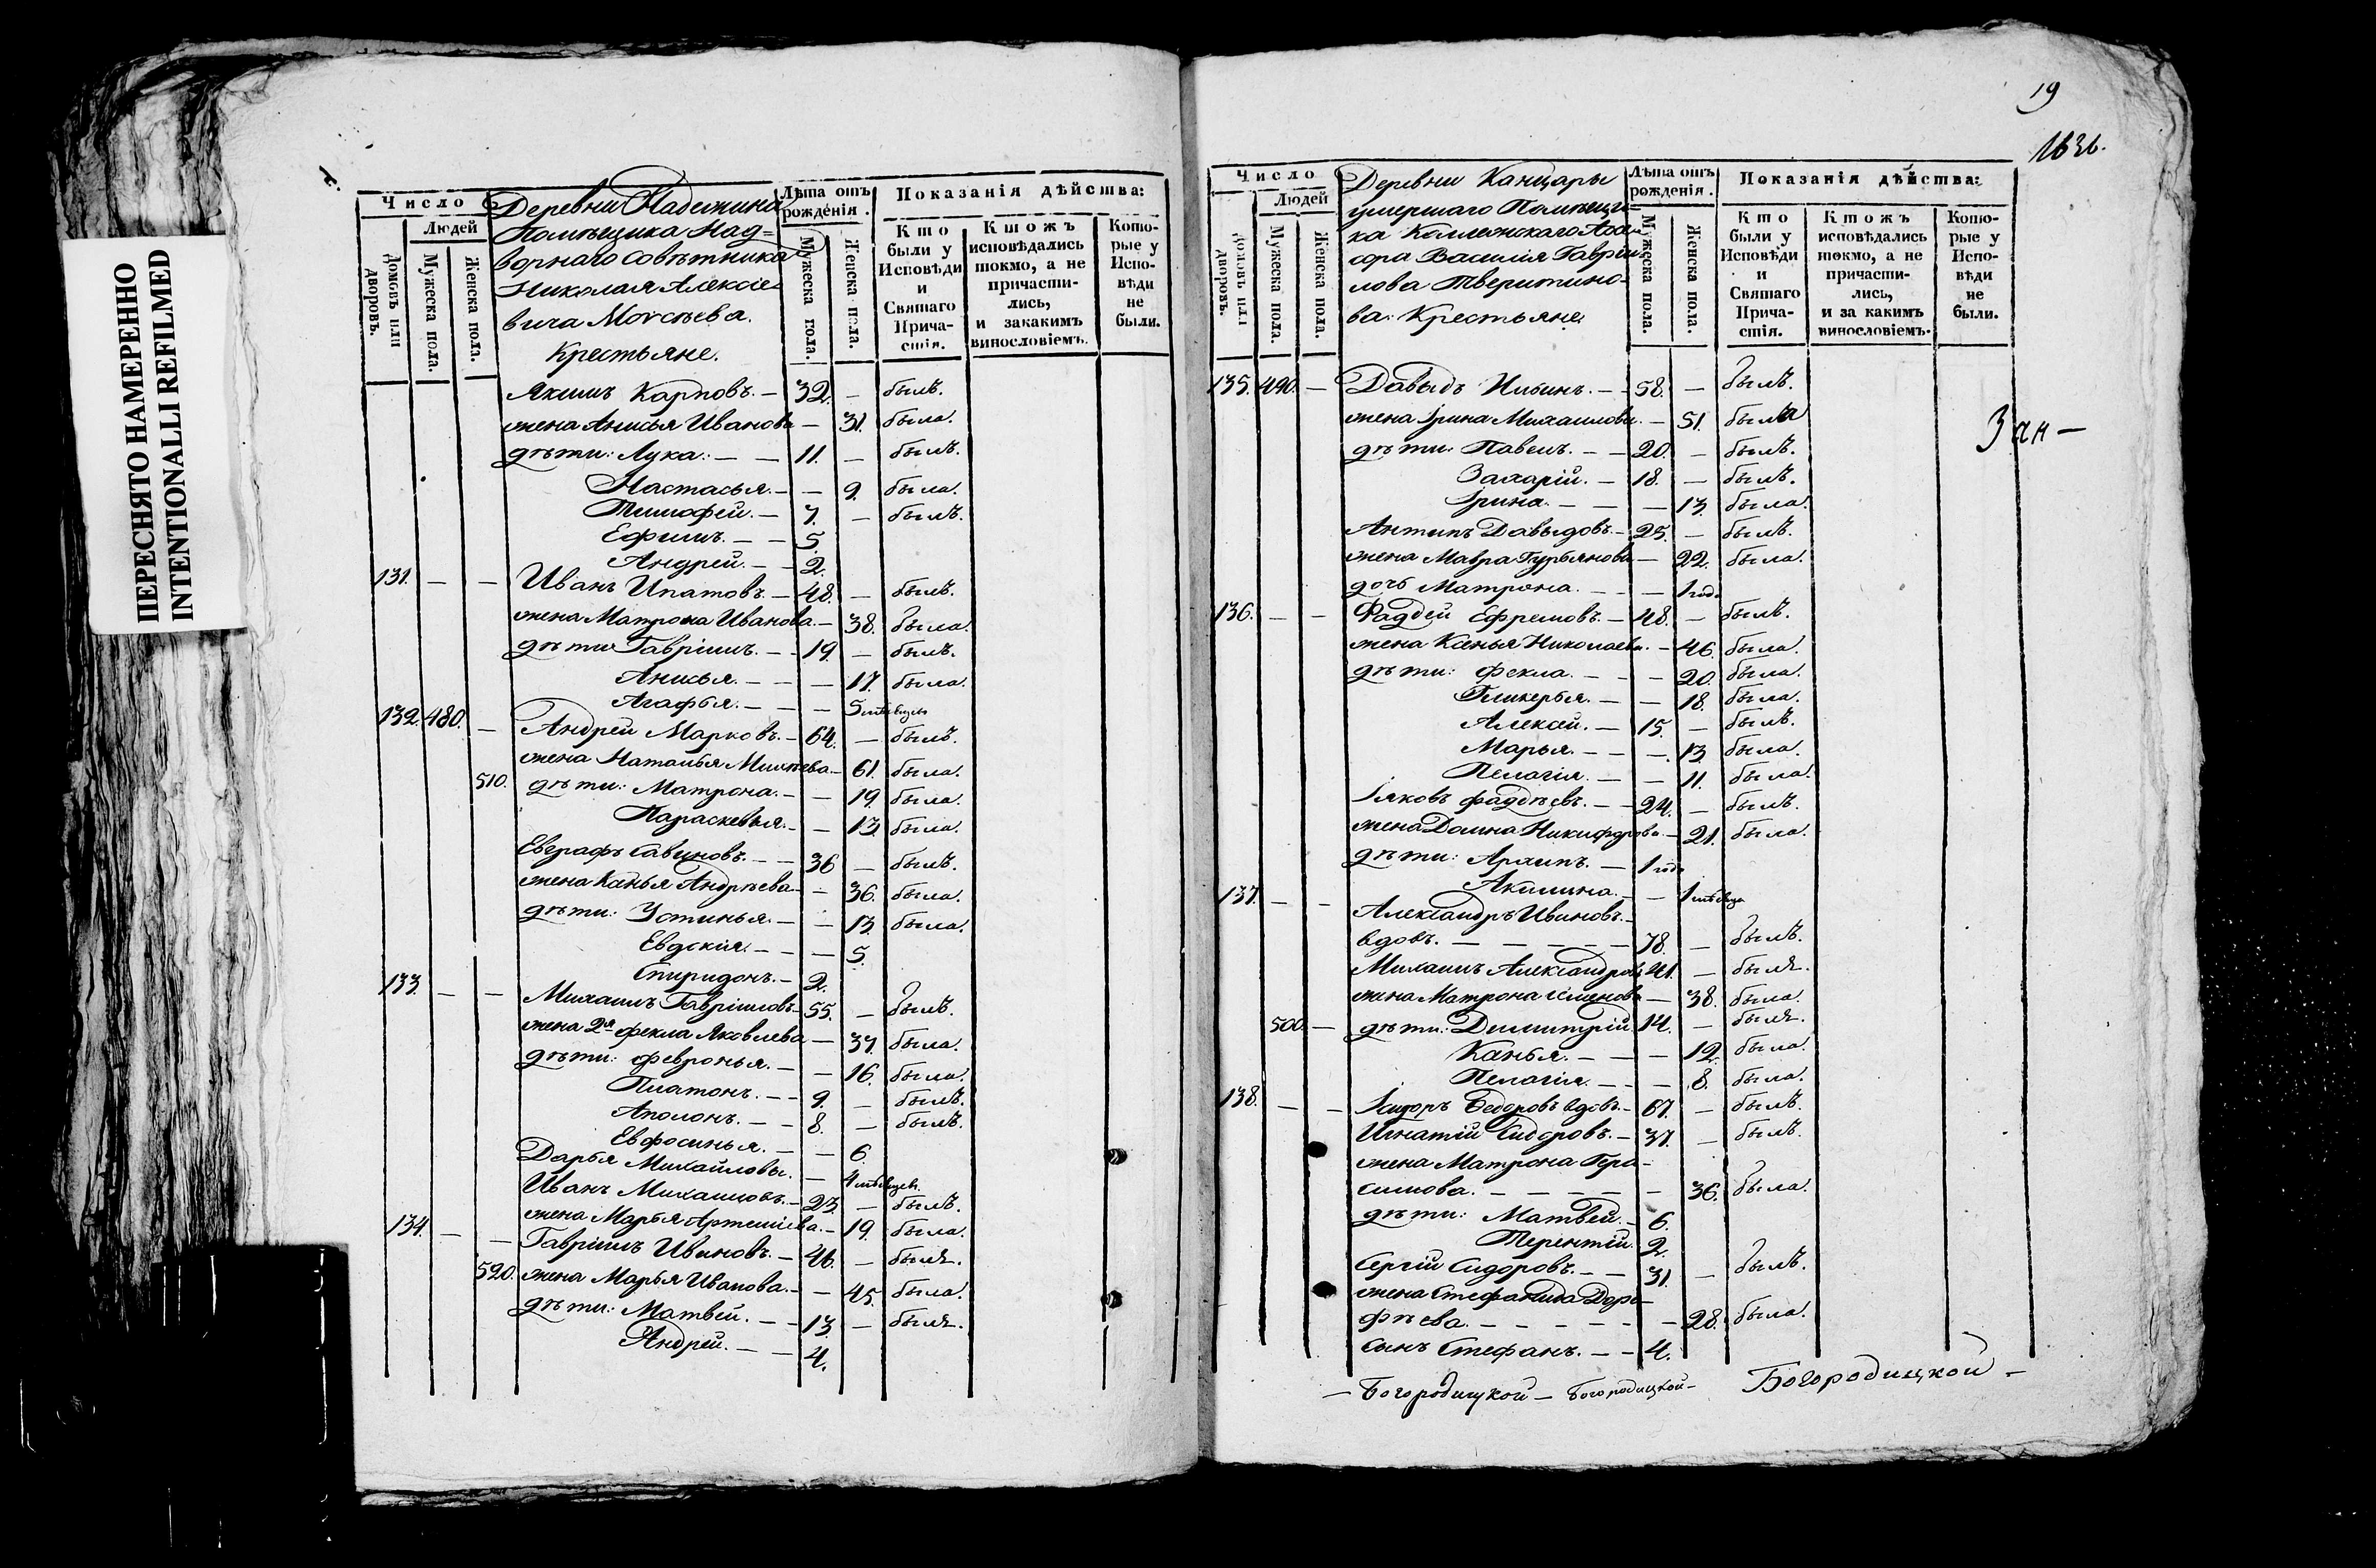 ПЕРЕСНЯТО НАМЕРЕННО
INTENTIONALLI REFILMED
Число
Людей
Домовъ или дворовъ.
Мужеска пола.
Женска пола.
Деревни Надежина
Помѣщика Над=
ворнаго Совѣтника
Николая Алексіе=
вича Моисѣева.
Крестьяне.
Лѣта отъ рожденія.
Мужеска пола.
Женска пола.
Показанія дѣйства:
Кто были у Исповѣди и Святаго Прича-стія.
Ктожъ исповѣдались токмо, а не причасти-лись, и закакимъ винословіемъ.
Кото-рые у Испо-вѣди не были.
Якимъ Карповъ. — 32. — былъ.
жена Анисья Иванова — 31. была.
дѣти: Лука. — — 11. — былъ.
Настасья. — — 9. была.
Тимофей. — 7. — былъ.
Ефимъ. — — 5.
Андрей. — — 2.
131. — — Иванъ Ипатовъ. — 48. — былъ.
жена Матрона Иванова. — 38. была.
дѣти Гавріилъ. — — 19. — былъ.
Анисья. — — — 17. была.
Агафья. — — — 5 мѣсяцевъ
132. 480. — Андрей Марковъ. — 64. — былъ.
жена Наталья Михѣева — 61. была.
510. дѣти: Матрона. — — 19. была.
Параскевья. — — 13. была.
Евграфъ Савиновъ. — — 36 — былъ.
жена Ксенья Андрѣева — — 36. была.
дѣти: Устинья. — — 13. была.
Евдокія. — — — 5.
Спиридонъ. — 2.
133. — — Михаилъ Гавріиловъ — 55. — былъ.
жена 2я Фекла Яковлева — 37. была.
дѣти: Февронья. — — 16. была.
Платонъ. — — 9. — былъ.
Аполонъ. — — 8. — былъ.
Евфосинья. — — 6.
Дарья Михайловы. — 4 мѣсяцевъ.
Иванъ Михаиловъ. — 23. — былъ.
жена Марья Артеміева. — 19. была.
134. — — Гавріилъ Ивановъ. — 46. — былъ.
520. жена Марья Иванова. — — 45. была.
дѣти: Матвей. — — 13. — былъ.
Андрей. — — 4.
19
1836.
Число
Людей
Домовъ или дворовъ.
Мужеска пола.
Женска пола.
Деревни Канцары
умершаго Помѣщи=
ка Коллежскаго Асе
сора Василія Гаврі
лова Тверитино=
ва: Крестьяне.
Лѣта отъ рожденія.
Мужеска пола.
Женска пола.
Показанія дѣйства:
Кто были у Исповѣди и Святаго Прича-стія.
Ктожъ исповѣдались токмо, а не причасти-лись, и за какимъ винословіемъ.
Кото-рые у Испо-вѣди не были.
135. 490. — Давыдъ Ильинъ. — — 58. — былъ.
жена Ірина Михаилова. — 51. была
дѣти: Павелъ. — — 20. — былъ.
Захарій. — 18. — былъ.
Ірина. — — — 13. была.
Антипъ Давыдовъ. — 25. — былъ.
жена Мавра Гурьянова — 22. была.
дочь Матрона. — — — 1 годъ
136. — — Фаддей Ефремовъ. — 48. — былъ.
жена Ксенья Николаева. — 46. была.
дѣти: Фекла. — — — 20. была.
Гликерья. — — 18. была.
Алексей. — 15. — былъ.
Марья. — — — 13. была.
Пелагія. — — 11. была.
Іяковъ Фаддѣевъ. — — 24. — былъ.
жена Домна Никифорова — 21. была.
дѣти: Архипъ. — 1 годъ
Акилина. — — 1 мѣсяца
137. — — Александръ Ивановъ. —
вдовъ. — — — — — 78. — былъ.
Михаилъ Александровъ 41. — былъ.
жена Матрона Семенова — 38. была.
500. — дѣти: Димитрій 14. — былъ.
Ксенья. — — — 12. была.
Пелагія. — — — 8. была.
138. — — Ісидоръ Ѳедоровъ вдовъ. — 67. — былъ.
Игнатій Сидоровъ. — 37. — былъ.
жена Матрона Гера-
симова. — — — — — 36. была.
дѣти: Матвей. — 6.
Терентій. 2.
Сергій Сидоровъ. — — 31. — былъ.
жена Стефанида Доро-
фѣева. — — — — — 28. была.
сынъ Стефанъ. — — 4.
Зан —
— Богородицкой — Богородицкой — Богородицкой —